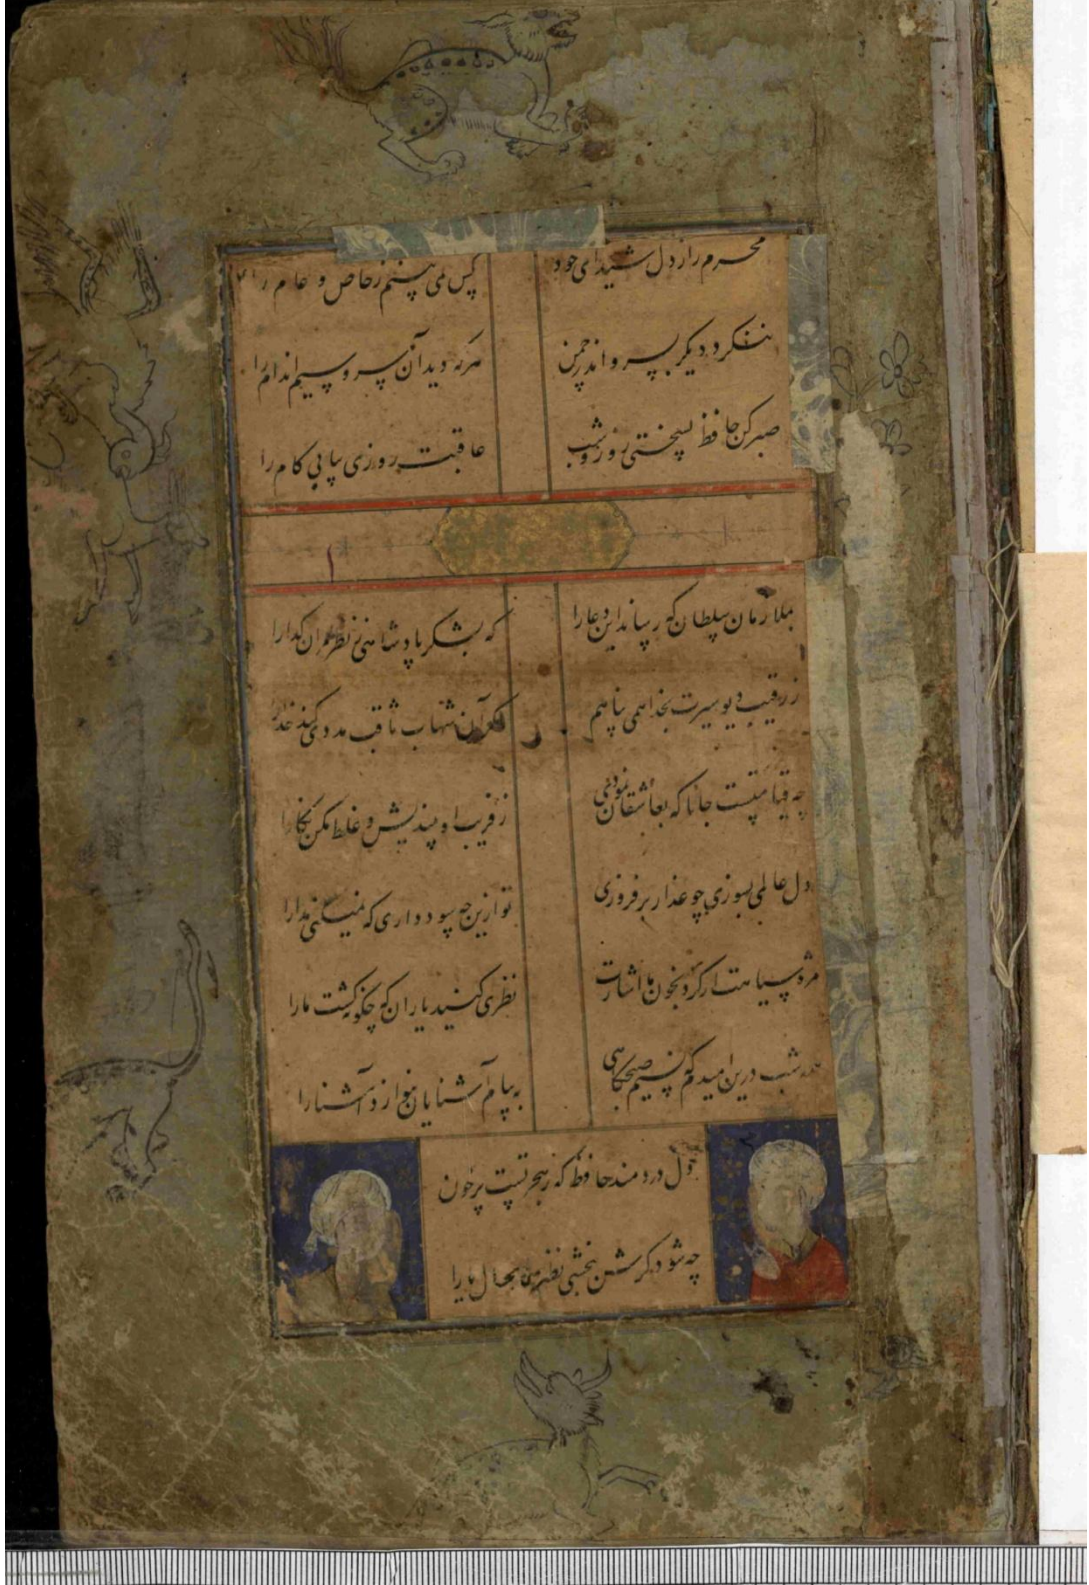 محرم راز دل شیدای خود
کس نمی بینم ز خاص و عام را
ننگرد دیگر بسرو اندر چمن
هرکه دید آن سرو سیم اندام را
صبر کن حافظ بسختی روز و شب
عاقبت روزی بیابی کام را
بملازمان سلطان که رساند این دعا را
که بشکر پادشاهی ز نظر مران کدا را
ز رقیب دیو سیرت بخدا همی پناهم
مکر آن شهاب ثاقب مددی کند خدا را
چه قیامتست جانا که بعاشقان نمودی
ز فریب او بیندیش و غلط مکن نکارا
دل عالمی بسوزی چو عذار برفروزی
تو ازین چه سود داری که نمیکنی مدارا
مژه سیاهت ار کرد بخون ما اشارت
نظری کنید یاران که چکونه کشت ما را
همه شب درین امیدم که نسیم صبحکاهی
به پیام آشنایان بنوازد آشنا را
دل دردمند حافظ که ز هجر تست پرخون
چه شود کر